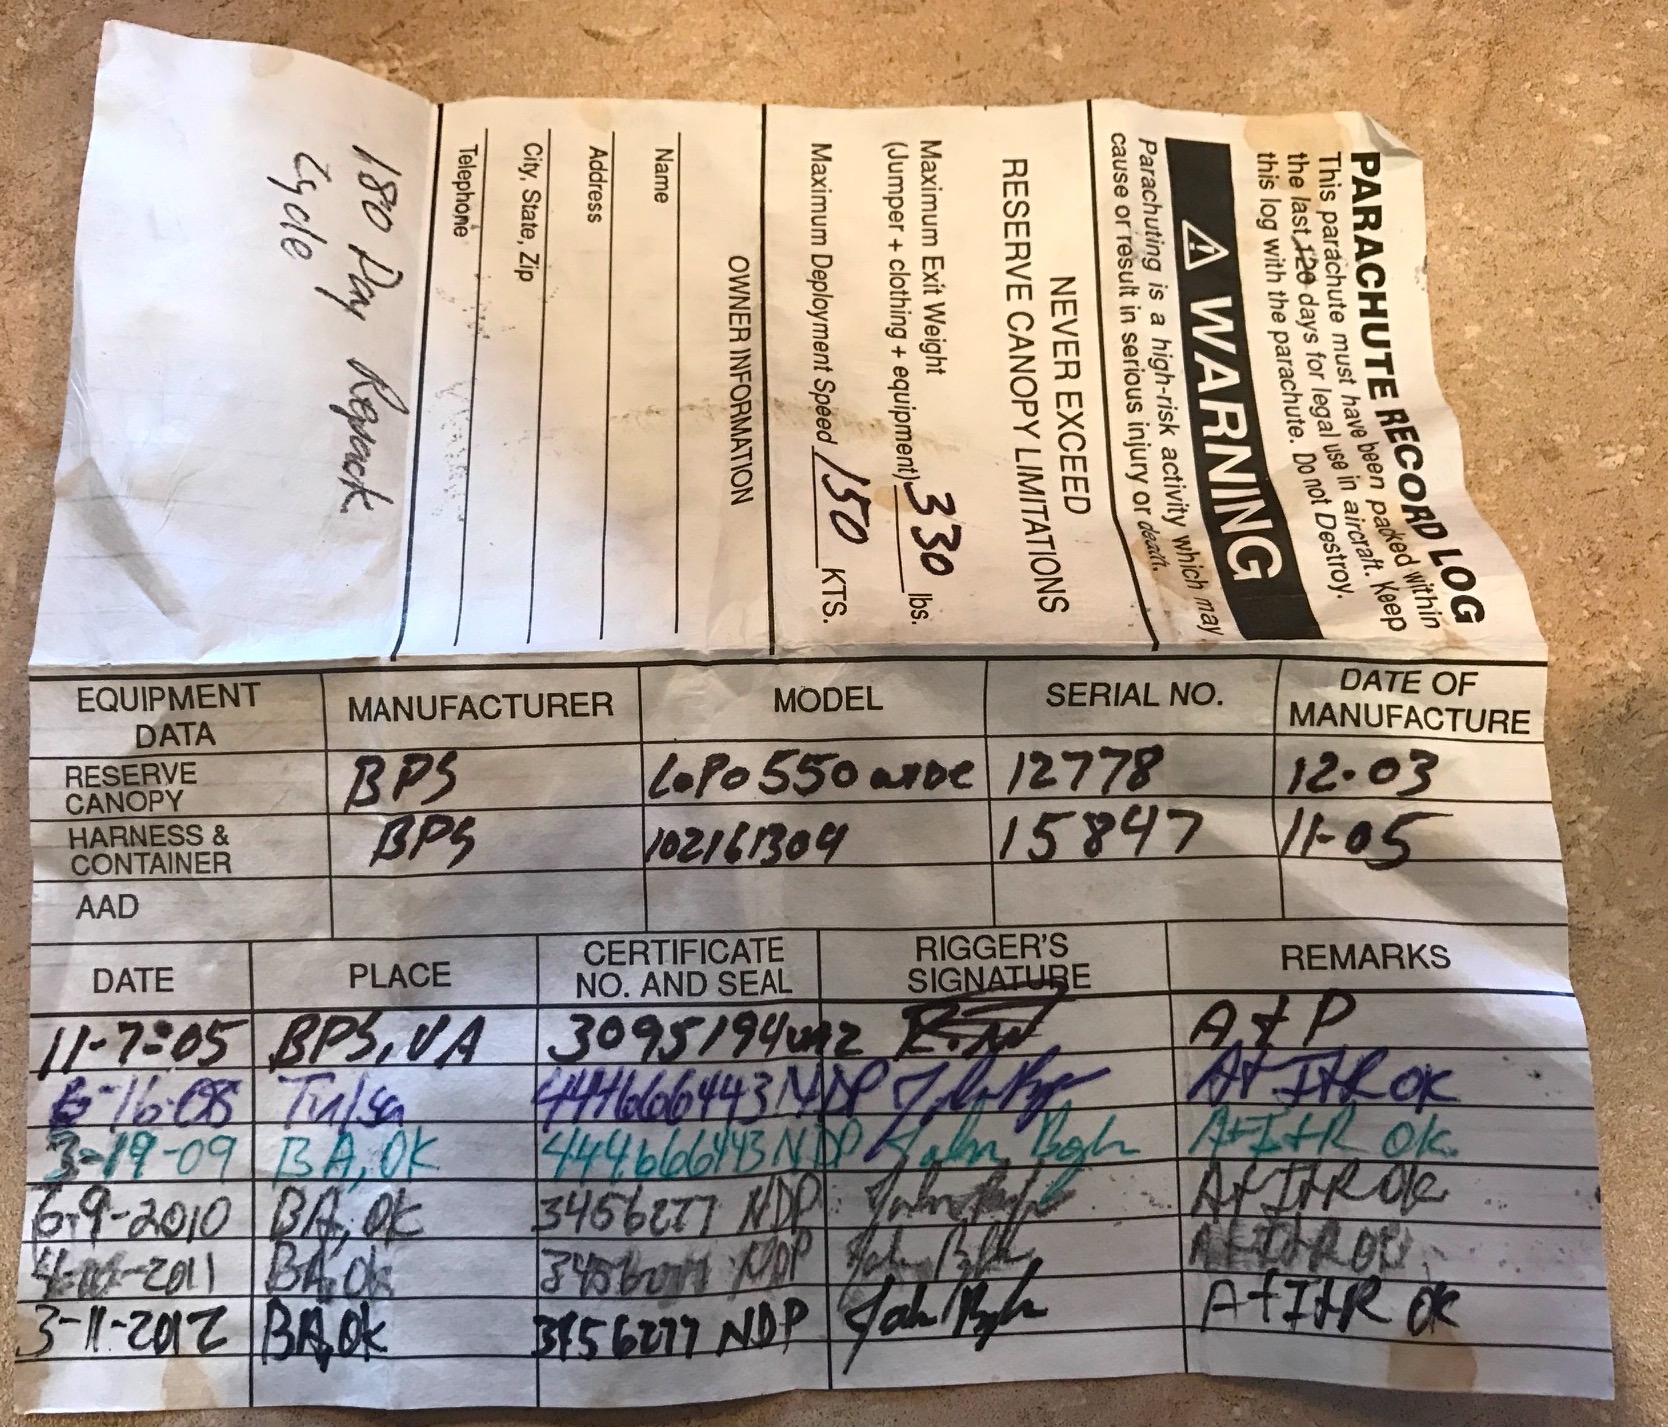 PARACHUTE RECORD LOG
This parachute must have been packed within
the last 120 days for legal use in aircraft. Keep
this log with the parachute. Do not Destroy.
⚠ WARNING
Parachuting is a high-risk activity which may
cause or result in serious injury or death.
NEVER EXCEED
RESERVE CANOPY LIMITATIONS
Maximum Exit Weight
(Jumper + clothing + equipment) 330 lbs.
Maximum Deployment Speed 150 KTS.
OWNER INFORMATION
Name
Address
City, State, Zip
Telephone
180 Day Repack
Cycle
EQUIPMENT DATA MANUFACTURER MODEL SERIAL NO. DATE OF MANUFACTURE
RESERVE CANOPY BPS LoPo 550 WIDE 12778 12-03
HARNESS & CONTAINER BPS 102161304 15847 11-05
AAD
DATE PLACE CERTIFICATE NO. AND SEAL RIGGER'S SIGNATURE REMARKS
11-7-05 BPS, VA 3095194 A+P
6-16-08 Tulsa 444666443 NDP John A+I+R OK
3-19-09 BA, OK 444666443 NDP John A+I+R OK.
6-9-2010 BA, OK 3456277 NDP John A+I+R OK
2011 BA, OK 3456277 NDP John A+I+R OK
3-11-2012 BA, OK 3456277 NDP John A+I+R OK